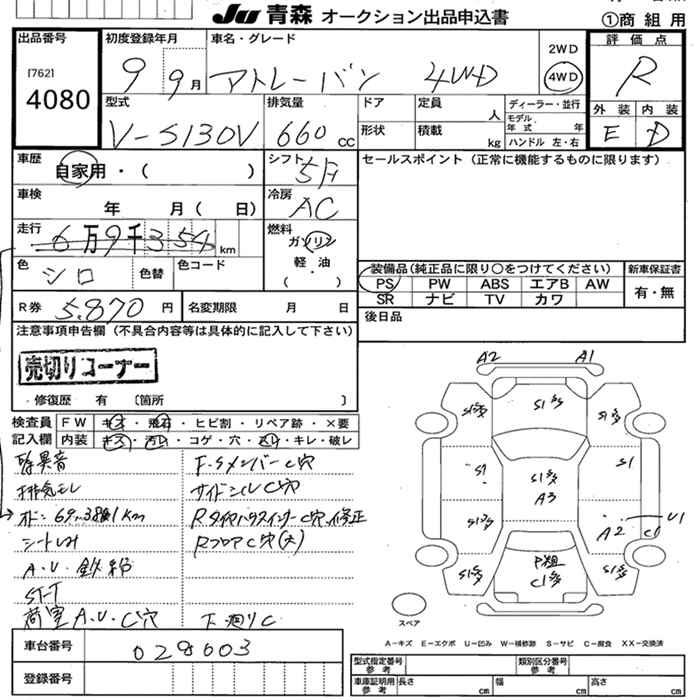 JU 青森 オークション出品申込書
①商組用
出品番号
[762]
4080
初度登録年月
9 9月
車名・グレード
アトレーバン 4WD
2WD
4WD
評価点
R
外装 内装
E D
型式
V-S130V
排気量
660 cc
ドア
定員 人
形状
積載 kg
ディーラー・並行
モデル年式 年
ハンドル 左・右
車歴
自家用・( )
シフト
5F
セールスポイント(正常に機能するものに限ります)
車検
年 月( 日)
冷房
AC
走行
6万9千354km
燃料
ガソリン
軽・油
( )
色
シロ
色替
色コード
装備品(純正品に限り○をつけてください)
PS PW ABS エアB AW
SR ナビ TV カワ
新車保証書
有・無
R券 5.870 円
名変期限 月 日
後日品
注意事項申告欄(不具合内容等は具体的に記入して下さい)
売切りコーナー
・修復歴 有 〔箇所 〕
検査員
記入欄
FW キズ・飛石・ヒビ割・リペア跡・×要
内装 キズ・汚レ・コゲ・穴・スレ・キレ・破レ
異音
F.Sメンバー C穴
排気モレ
サイドシル C穴
オド:
km
R タイヤハウスインナー C穴.修正
シート
Rフロア C穴(大)
A.U.
ST-T
荷室 A.U.C穴
下廻り C
A2 A1
S1
A3
S1
A2
U1
C1
P粗
スペア
A−キズ E−エクボ U−凹み W−補修跡 S−サビ C−腐食 XX−交換済
車台番号
028603
登録番号
型式指定番号 参考
類別区分番号 参考
車庫証明用 参考
長さ cm
幅 cm
高さ cm